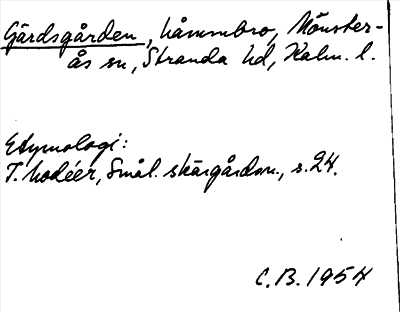 Gärdsgården, Låmmbro, Mönster-
ås sn, Stranda hd, Kalm. l.
Etymologi:
T. Modéer, Smål. skärgårdsn., s. 24.
C.B. 1954